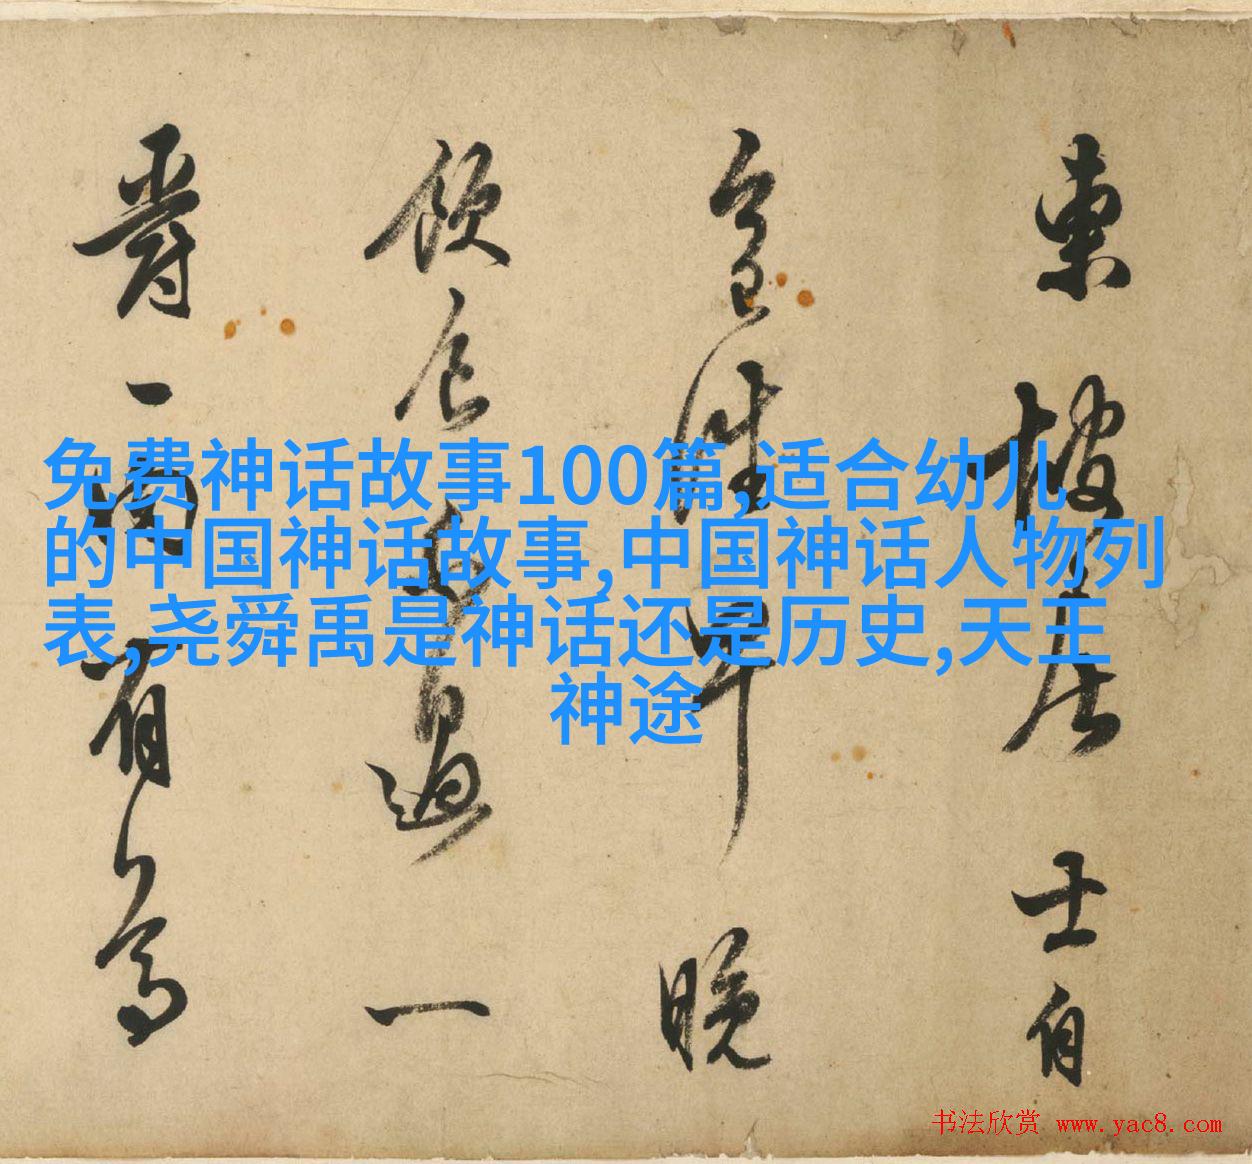 免费神话故事100篇,适合幼儿
的中国神话故事,中国神话人物列
表,尧舜禹是神话还是历史,天王
神途
東坡居士自
今日以往早晚
飲食不過一
爵一肉有尊
书法欣赏 www.yac8.com